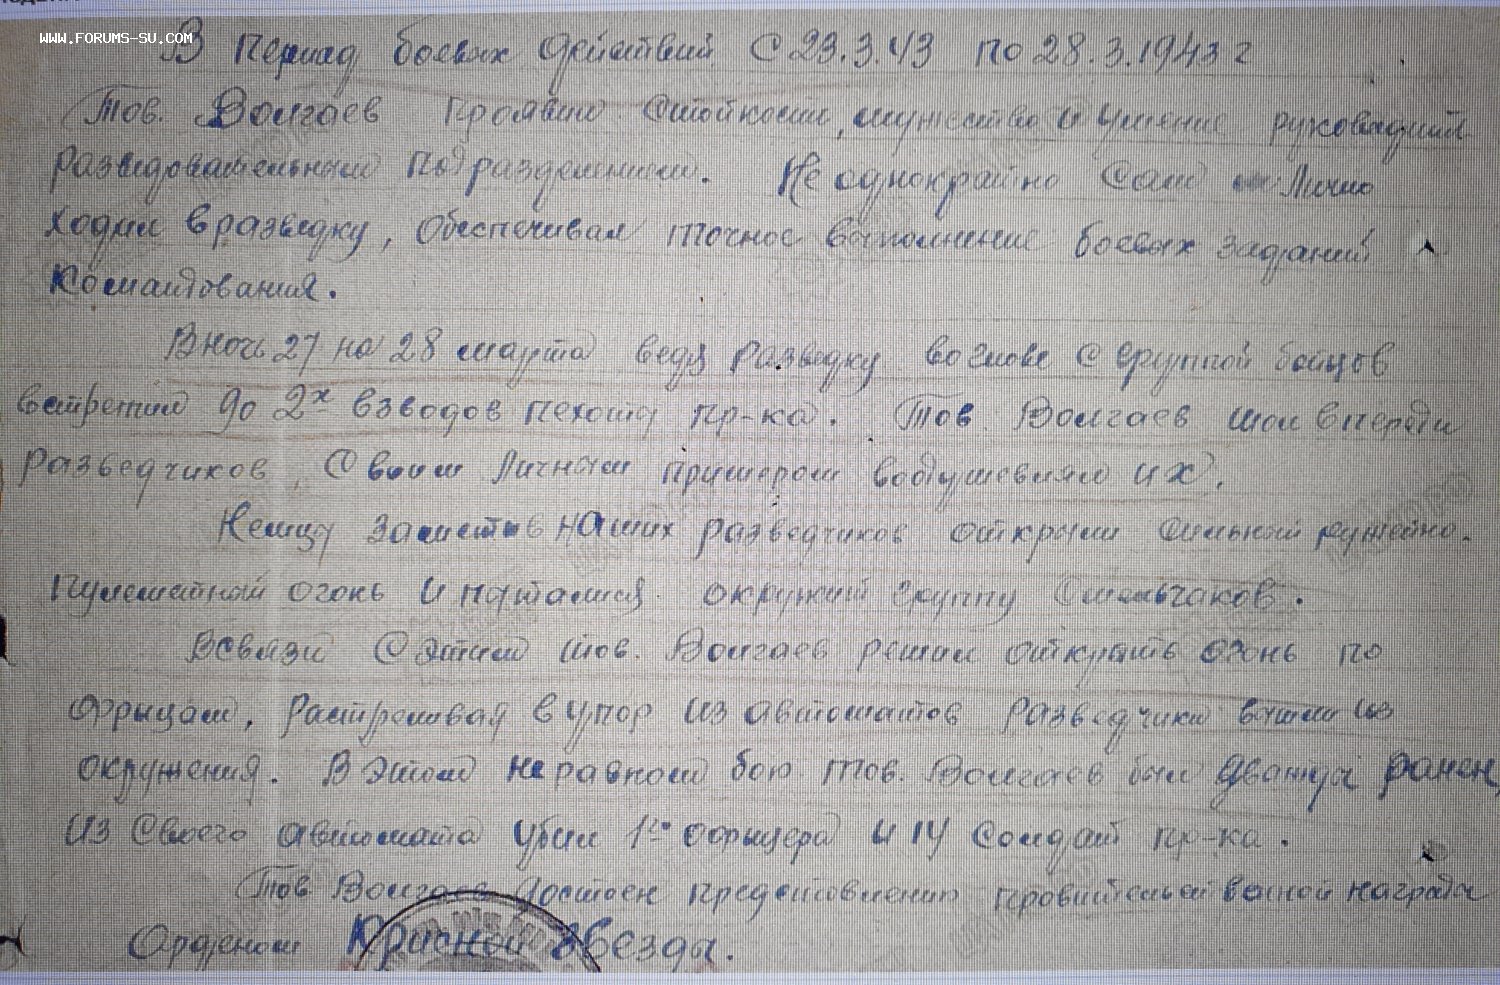 WWW.FORUMS-SU.COM
В Период боевых действий с 23.3.43 по 28.3.1943 г
Тов. Волгаев проявил стойкость, мужество и умение руководящий
разведовательным подразделением. Не однократно сам лично
ходил в разведку, обеспечивал точное выполнение боевых заданий
командования.
В ночь 27 на 28 марта ведя разведку во главе с группой бойцов
встретил до 2х взводов пехоты пр-ка. Тов. Волгаев шол впереди
разведчиков, своим личным примером водушевлял их.
Немцы заметив наших разведчиков открыли сильный ружейно.
пулеметный огонь и пытались окружить группу смельчаков.
Всвязи с этим тов. Волгаев решил открыть огонь по
фрицам, растреливая в упор из автоматов разведчики вышли из
окружения. В этом неравном бою тов. Волгаев был дважды ранен,
из своего автомата убил 1го офицера и 14 солдат пр-ка.
Тов. Волгаев достоен предстовлению правительственной награды
Орденом Красной звезды.